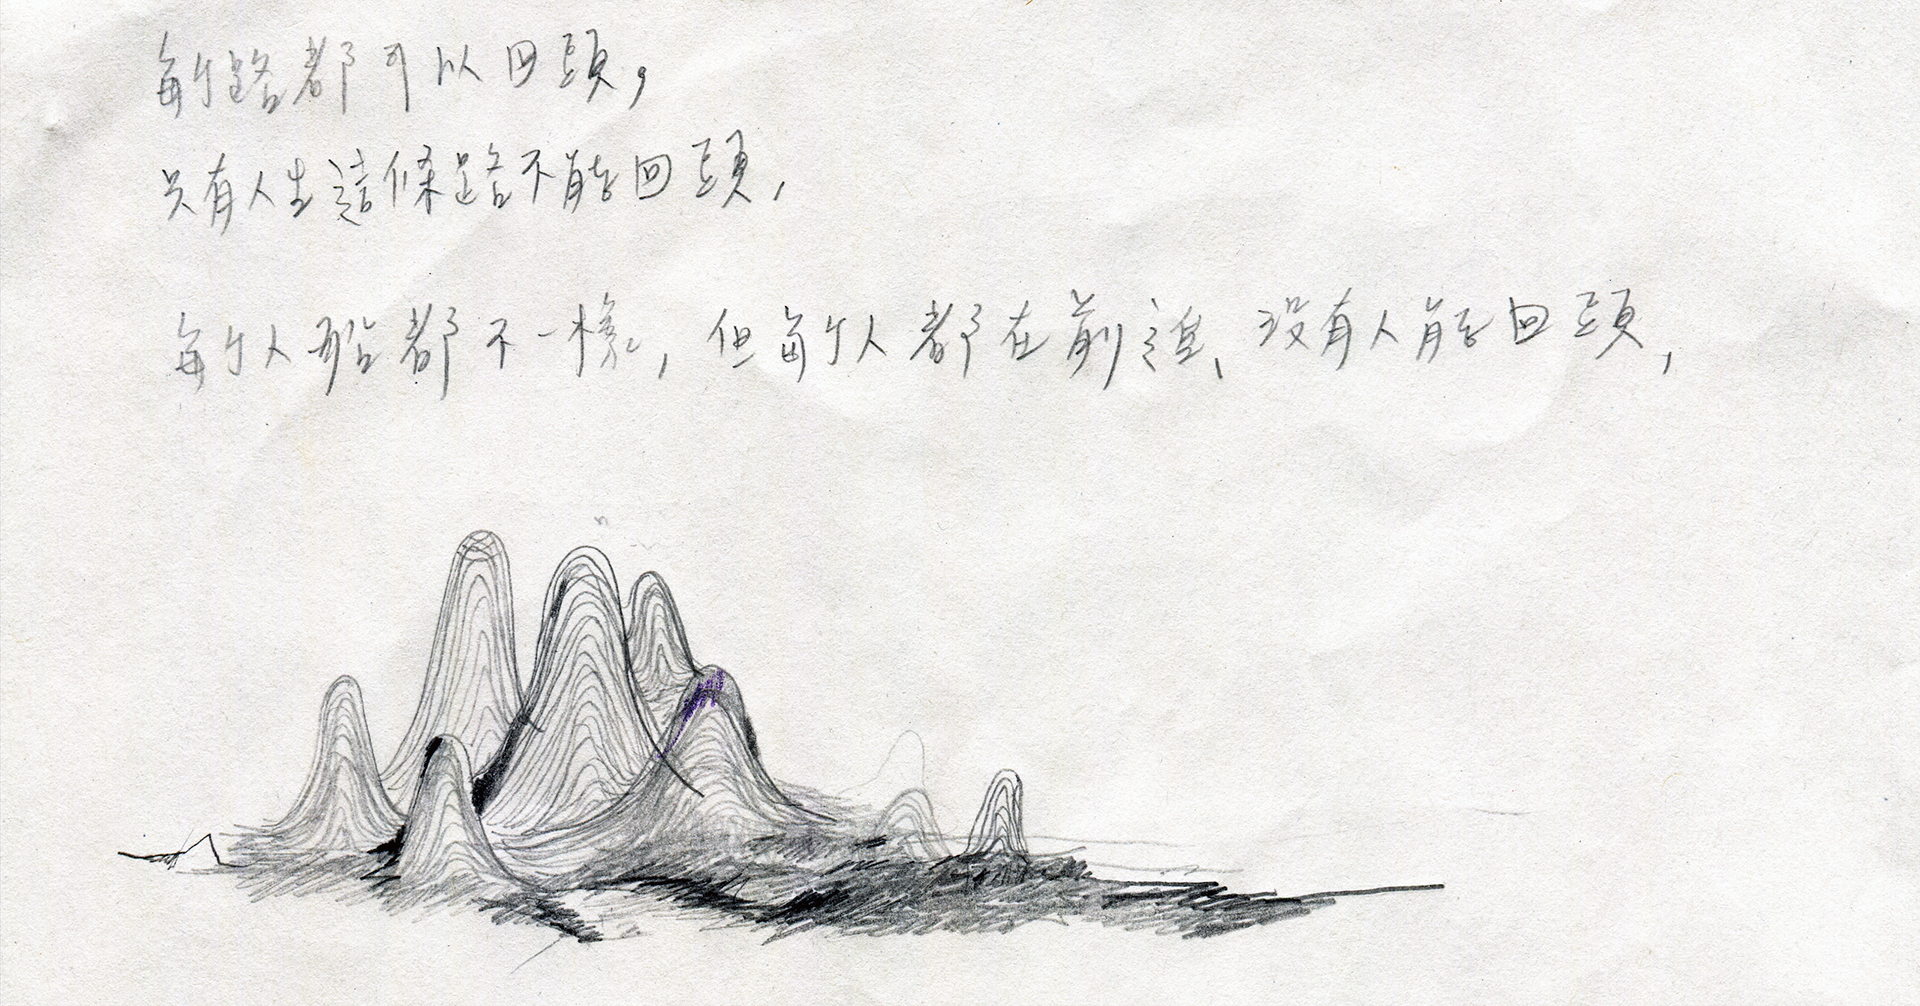 每个路都可以回頭，
只有人生這條路不能回頭，
每个人船都不一樣，但每个人都在前進、沒有人能回頭，